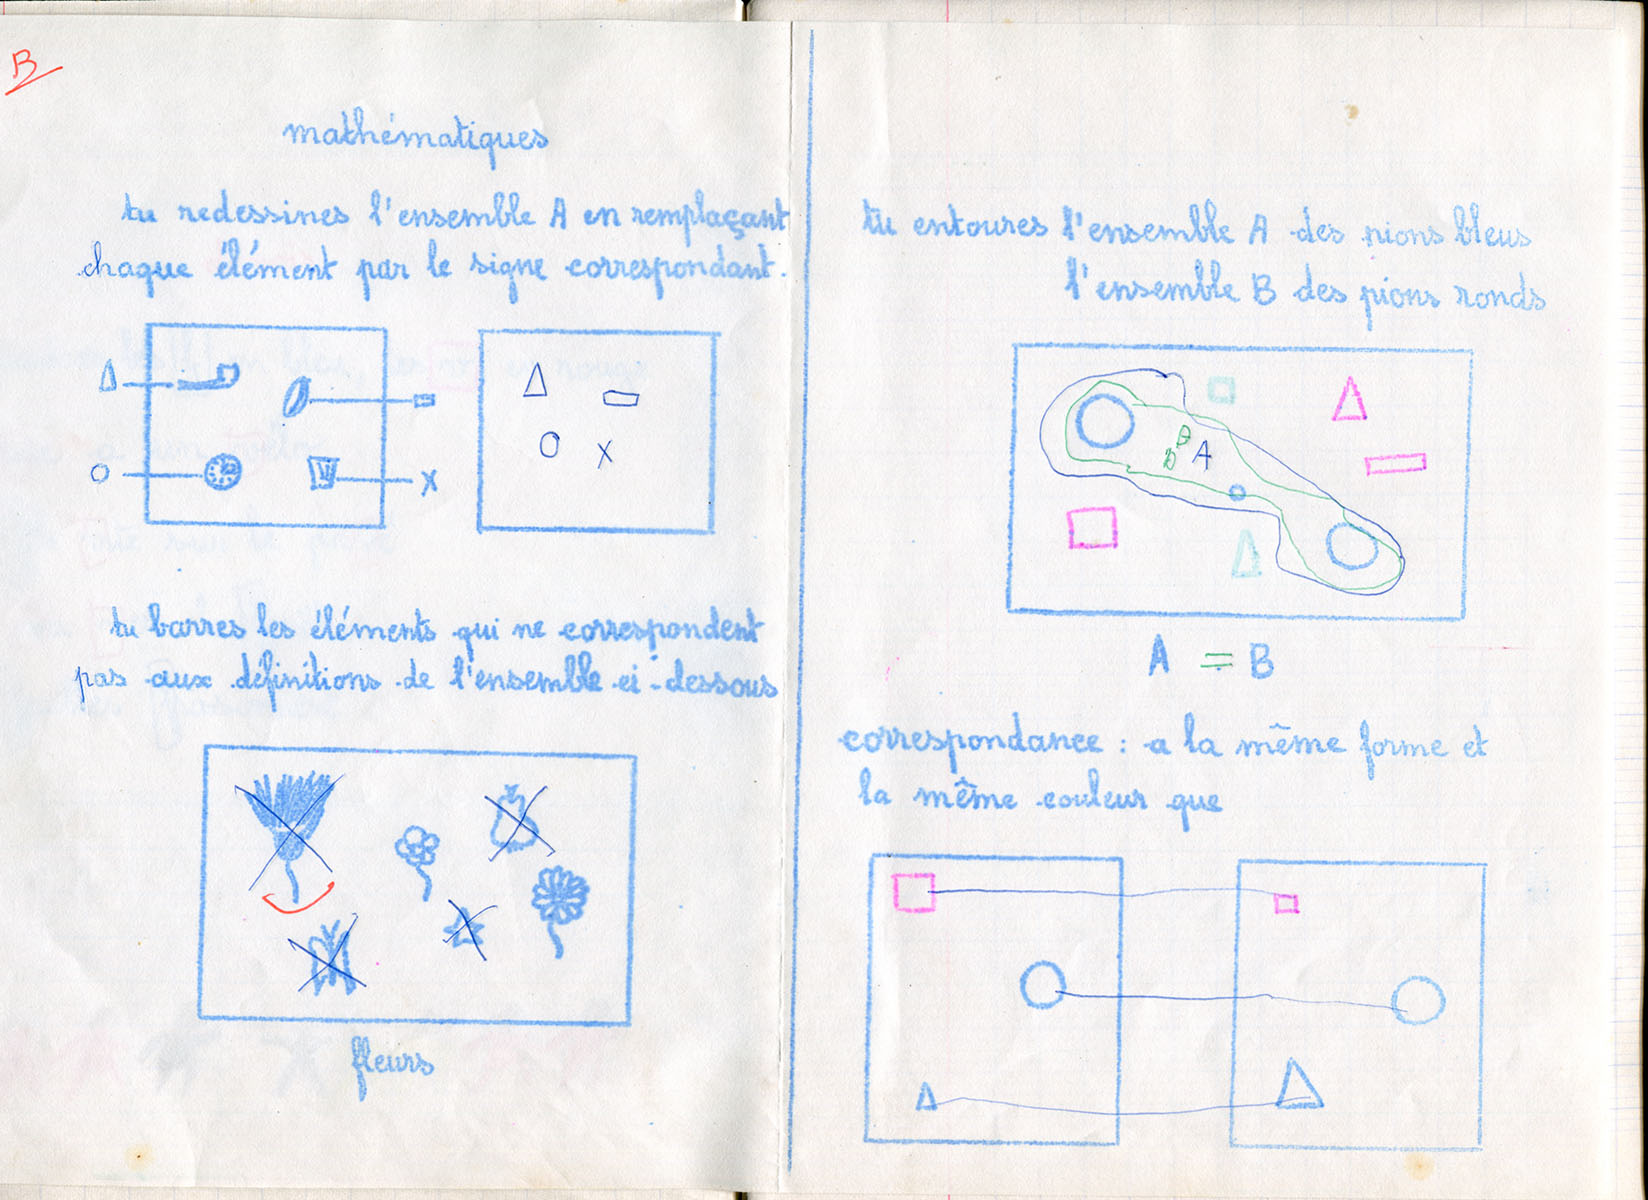 B
mathématiques
tu redessines l'ensemble A en remplaçant
chaque élément par le signe correspondant.
X
X
tu barres les éléments qui ne correspondent
pas aux définitions de l'ensemble ci-dessous
fleurs
tu entoures l'ensemble A des pions bleus
l'ensemble B des pions ronds
B
A
A = B
correspondance : a la même forme et
la même couleur que